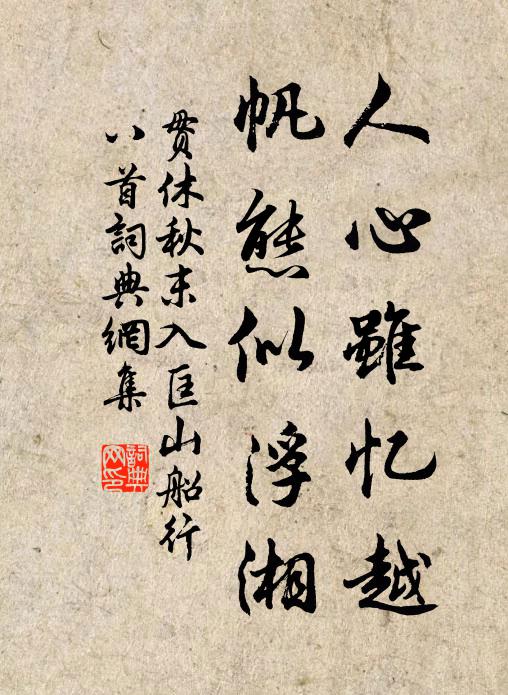 人心雖忆越
帆態似浮湘
贯休秋末入匡山船行
八首詞典網集
詞典网印